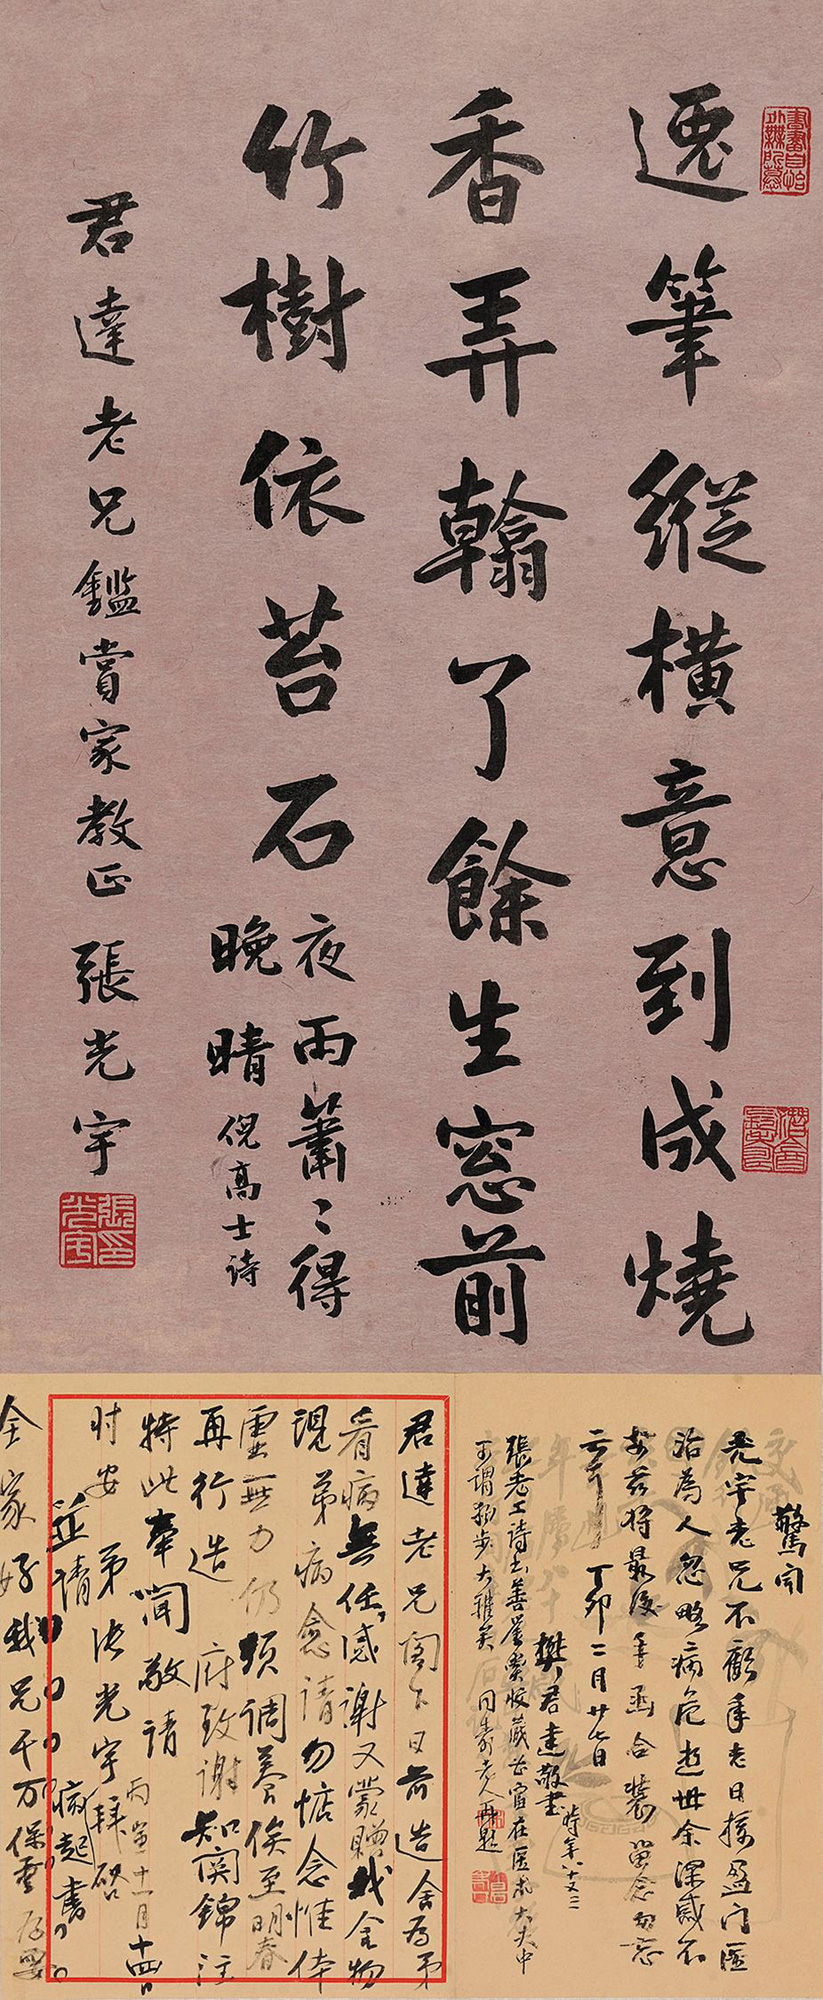 逸筆縱橫意到成燒
香弄翰了餘生窓前
竹樹依苔石
夜雨蕭〻得
晚晴
倪高士詩
君達老兄鑑賞家教正 張光宇
張光宇印
驚聞
光宇老兄不顧年老日接盈門医
治為人忽略病危逝世余深感不
安茲將最後手函合裝留念
云耳 丁卯二月廿七日
樊君達敬書 時年八十又三
張老工詩書善鑒賞收藏尤富在医術大夫中
可謂獨步大雅矣 再題
君達老兄閣下日前造舍為弟
看病無任感謝又蒙贈我食物
現弟病愈請勿惦念惟体
虛無力仍須調養俟至明春
再行造府致謝知関錦注
特此奉聞敬請
時安 弟張光宇拜啓
丙寅十一月十四日
並請
病起書
全家好我兄千万保重